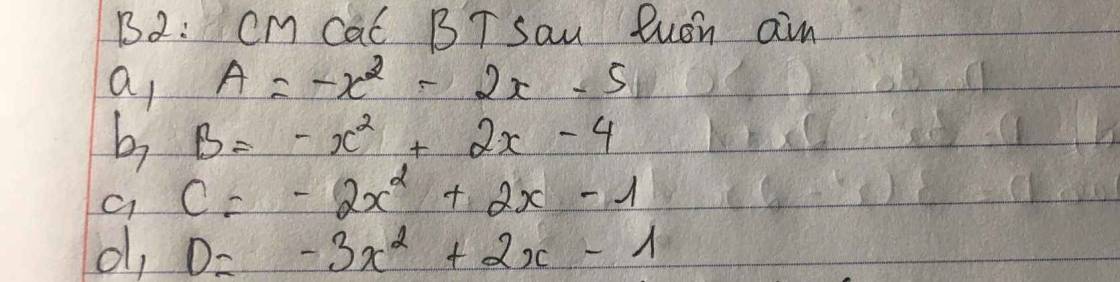 B2: CM các BT sau luôn âm
a, A = -x² - 2x - 5
b, B = -x² + 2x - 4
c, C = - 2x² + 2x - 1
d, D = -3x² + 2x - 1